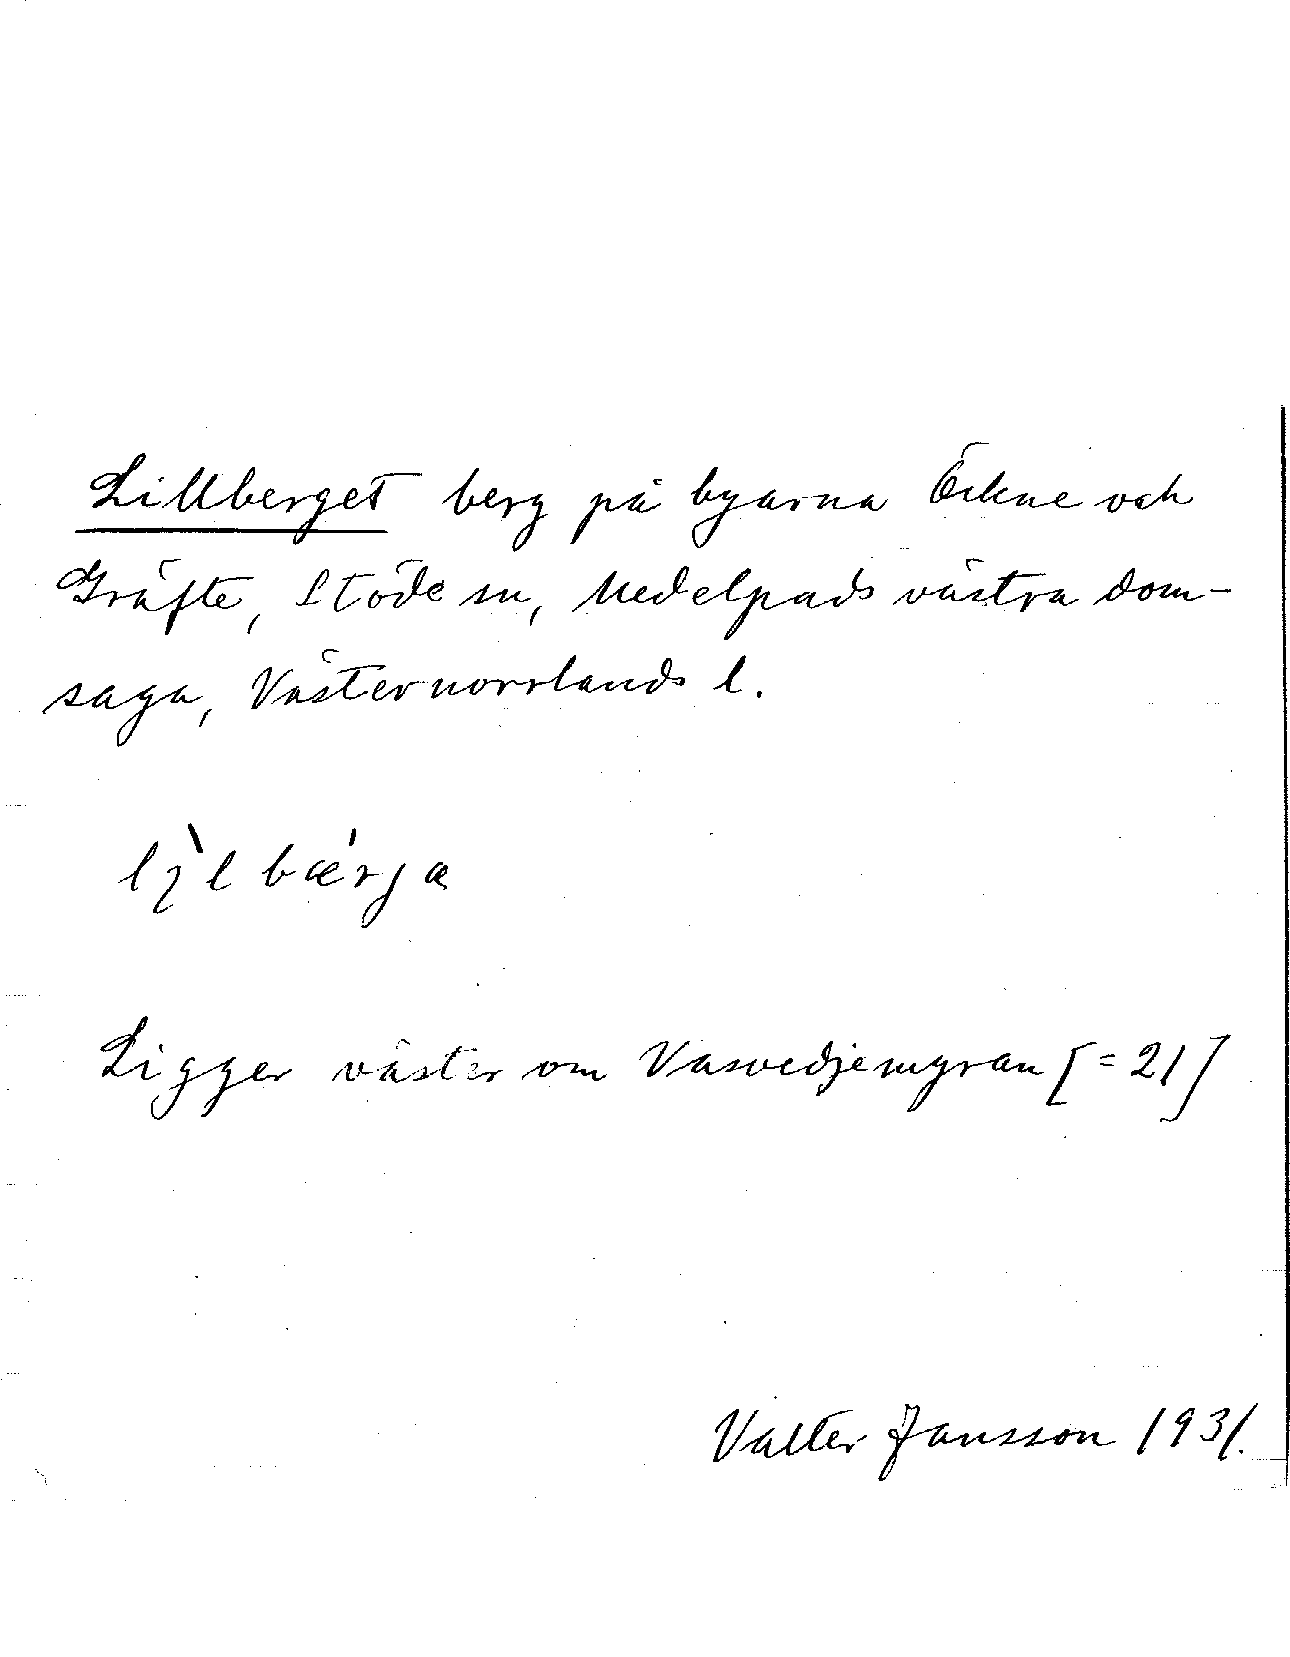 Lillberget berg på byarna Öckne och
Gräfte, Stöde sn, Medelpads västra dom-
saga, Västernorrlands l.
bærja
Ligger väster om Vasvedjemyran [=21]
Valter Jansson 1931.